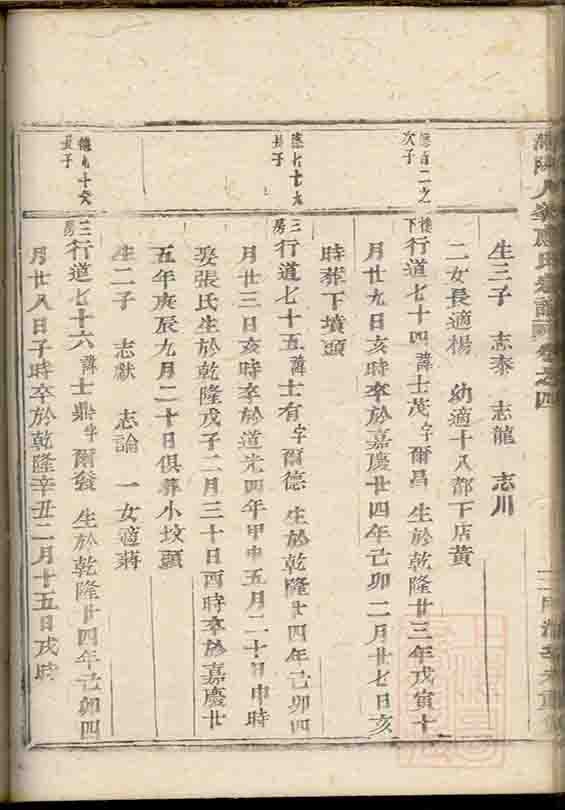 卷之四
生三子 志泰 志龍 志川
二女長適楊 幼適十八都下店黃
德百二之
次子
樓下行道七十四諱士茂字爾昌 生於乾隆廿三年戊寅十
月廿九日亥時卒於嘉慶廿四年己卯二月廿七日亥
時葬下墳頭
長子
三房行道七十五諱士有字爾德 生於乾隆廿四年己卯四
月廿三日亥時卒於道光四年甲申五月二十日申時
娶張氏生於乾隆戊子二月三十日酉時卒於嘉慶廿
五年庚辰九月二十日俱葬小坟頭
生二子 志猷 志論 一女適蔣
德九十六
長子
三房行道七十六諱士鼎字爾發 生於乾隆廿四年己卯四
月廿八日子時卒於乾隆辛丑二月十五日戌時